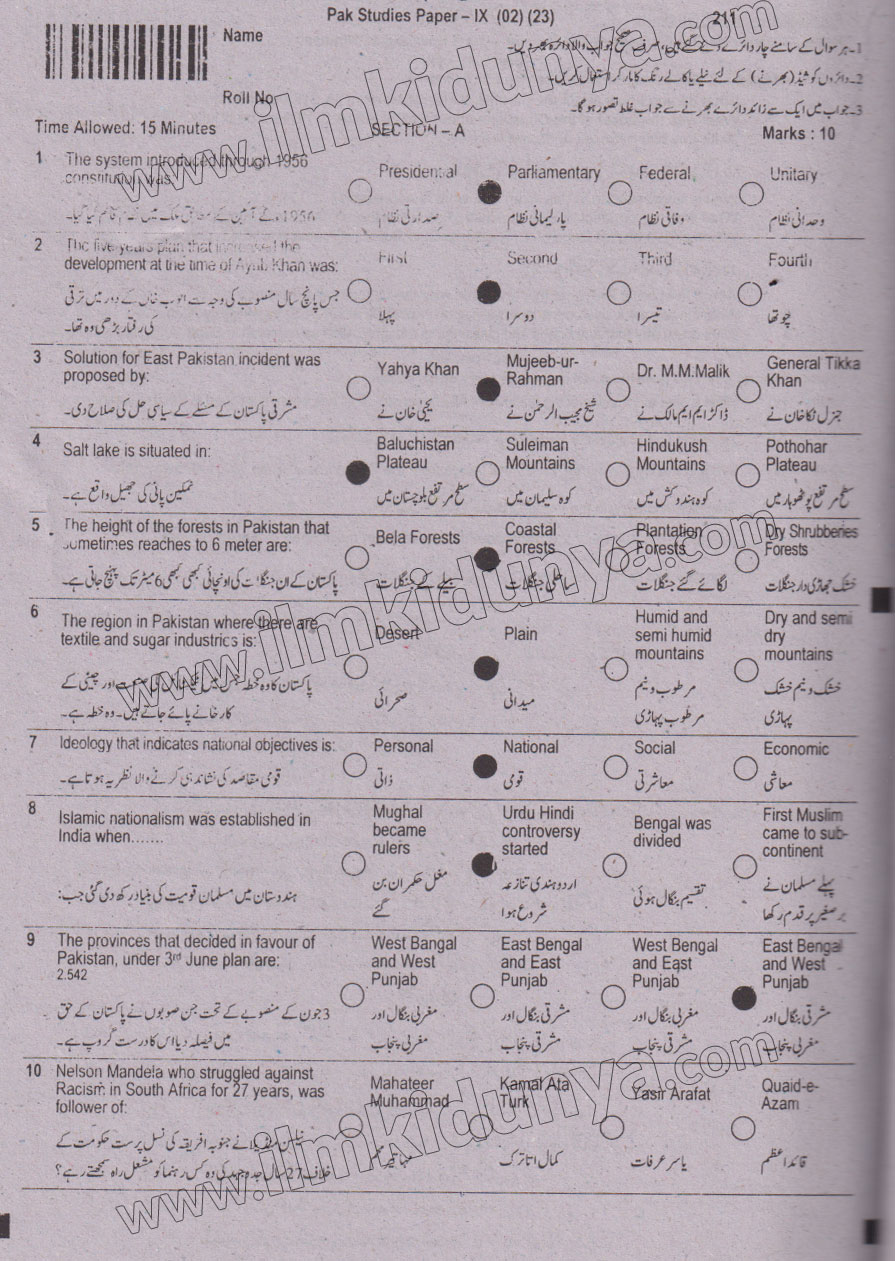 Pak Studies Paper – IX (02) (23)
211
Name
1۔ہر سوال کے سامنے چار دائرے دیے گئے ہیں، صرف صحیح جواب والا دائرہ بھر دیں۔
2۔دائروں کو شیڈ (بھرنے) کے لئے نیلے یا کالے رنگ کا مارکر استعمال کریں۔
Roll No
3۔جواب میں ایک سے زائد دائرے بھرنے سے جواب غلط تصور ہو گا۔
Time Allowed: 15 Minutes SECTION – A Marks : 10
1 The system introduced through 1956 constitution was
Presidential Parliamentary Federal Unitary
1956ء کے آئین کے مطابق ملک میں نظام قائم کیا گیا۔
صدارتی نظام پارلیمانی نظام وفاقی نظام وحدانی نظام
2 The five years plan that increased the
development at the time of Ayub Khan was:
First Second Third Fourth
جس پانچ سال منصوبے کی وجہ سے ایوب خان کے دور میں ترقی
کی رفتار بڑھی وہ تھا۔
پہلا دوسرا تیسرا چوتھا
3 Solution for East Pakistan incident was
proposed by:
Yahya Khan Mujeeb-ur-Rahman Dr. M.M.Malik General Tikka Khan
مشرقی پاکستان کے مسئلے کے سیاسی حل کی صلاح دی۔
یحییٰ خان نے شیخ مجیب الرحمٰن نے ڈاکٹر ایم ایم مالک نے جنرل ٹکا خان نے
4 Salt lake is situated in:
Baluchistan Plateau Suleiman Mountains Hindukush Mountains Pothohar Plateau
نمکین پانی کی جھیل واقع ہے۔
سطح مرتفع بلوچستان میں کوہ سلیمان میں کوہ ہندوکش میں سطح مرتفع پوٹھوہار میں
5 The height of the forests in Pakistan that
sometimes reaches to 6 meter are:
Bela Forests Coastal Forests Plantation Forests Dry Shrubberies Forests
پاکستان کے ان جنگلات کی اونچائی کبھی کبھی 6 میٹر تک پہنچ جاتی ہے۔
بیلے کے جنگلات ساحلی جنگلات لگائے گئے جنگلات خشک جھاڑی دار جنگلات
6 The region in Pakistan where there are
textile and sugar industries is:
Desert Plain Humid and semi humid mountains Dry and semi dry mountains
پاکستان کا وہ خطہ جس میں اور چینی کے
کارخانے پائے جاتے ہیں۔ وہ خطہ ہے۔
صحرائی میدانی مرطوب و نیم مرطوب پہاڑی خشک و نیم خشک پہاڑی
7 Ideology that indicates national objectives is:
Personal National Social Economic
قومی مقاصد کی نشاندہی کرنے والا نظریہ ہوتا ہے۔
ذاتی قومی معاشرتی معاشی
8 Islamic nationalism was established in
India when.......
Mughal became rulers Urdu Hindi controversy started Bengal was divided First Muslim came to sub-continent
ہندوستان میں مسلمان قومیت کی بنیاد رکھ دی گئی جب:
مغل حکمران بن گئے اردو ہندی تنازعہ شروع ہوا تقسیم بنگال ہوئی پہلے مسلمان نے برصغیر پر قدم رکھا
9 The provinces that decided in favour of
Pakistan, under 3rd June plan are:
2.542
West Bangal and West Punjab East Bengal and East Punjab West Bengal and East Punjab East Bengal and West Punjab
3 جون کے منصوبے کے تحت جن صوبوں نے پاکستان کے حق
میں فیصلہ دیا اس کا درست گروپ ہے۔
مغربی بنگال اور مغربی پنجاب مشرقی بنگال اور مشرقی پنجاب مغربی بنگال اور مشرقی پنجاب مشرقی بنگال اور مغربی پنجاب
10 Nelson Mandela who struggled against
Racism in South Africa for 27 years, was
follower of:
Mahateer Muhammad Kamal Ata Turk Yasir Arafat Quaid-e-Azam
نیلسن منڈیلا نے جنوبی افریقہ کی نسل پرست حکومت کے
خلاف 27 سال جدوجہد کی وہ کس رہنما کو مشعل راہ سمجھتے رہے؟
مہاتیر محمد کمال اتاترک یاسر عرفات قائداعظم
www.ilmkidunya.com
www.ilmkidunya.com
www.ilmkidunya.com